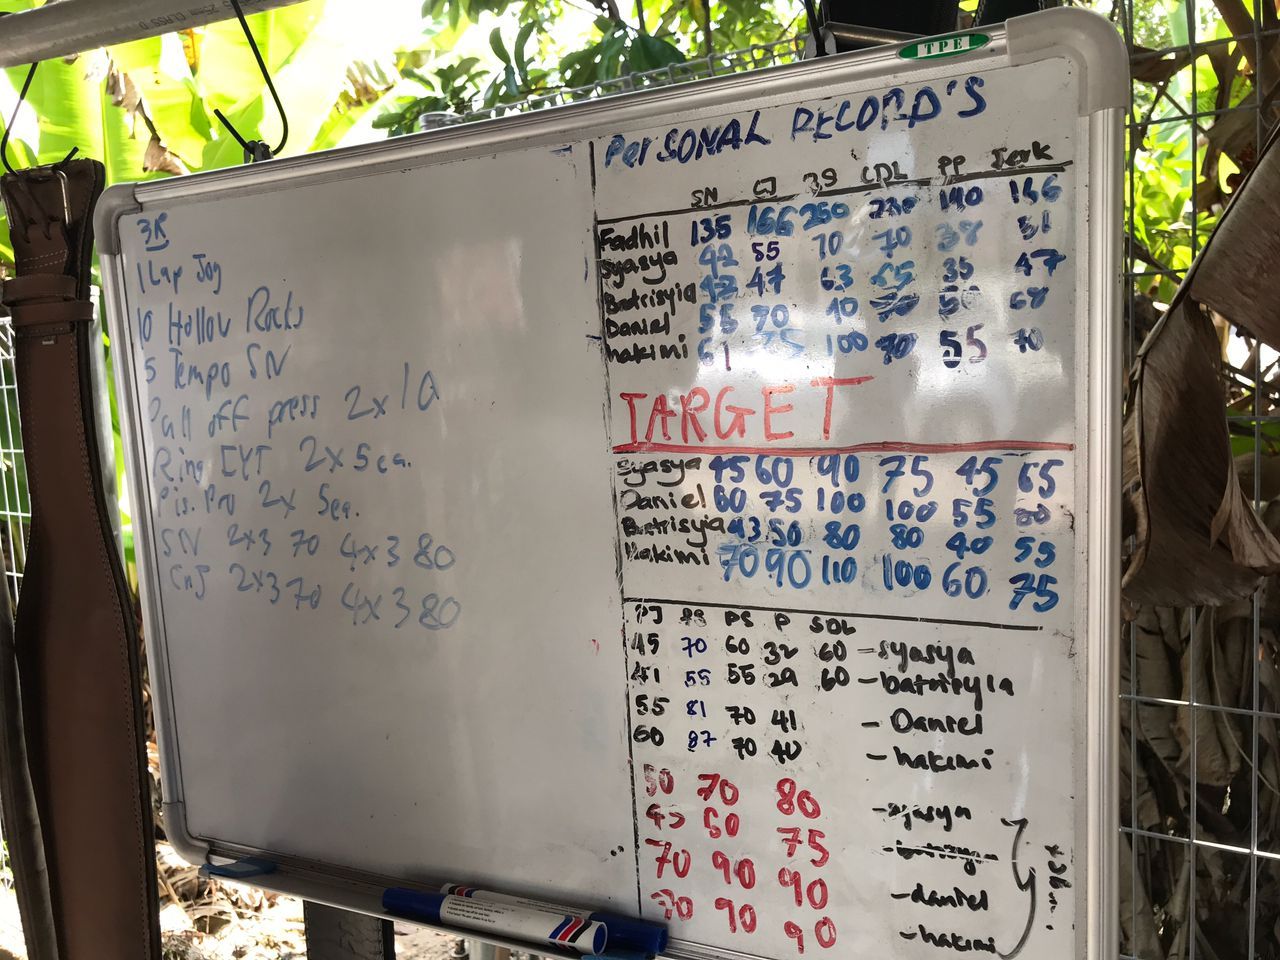 25mm CLASS
TPE
3K
1 Lap Jog
10 Hollow Rocks
5 Tempo SN
Pall off press 2x10
Ring IYT 2x5ea.
Pis. Pro 2x 5ea.
SN 2x3 70 4x3 80
CnJ 2x3 70 4x3 80
PerSONAL RECORD'S
SN CJ BS CDL PP Jerk
Fadhil 135 166 250 140 146
Syasya 42 55 70 70 38 51
Batrisyia 42 47 63 65 35 47
Daniel 55 70 40 70 50 68
hakimi 61 75 100 70 55 70
TARGET
Syasya 45 60 90 75 45 65
Daniel 60 75 100 100 55 80
Batrisyia 43 50 80 80 40 55
Hakimi 70 90 110 100 60 75
PJ FS PS P SDL
45 70 60 32 60 - syasya
41 55 55 29 60 - batrisyia
55 81 70 41 - Daniel
60 87 70 40 - hakimi
50 70 80 - syasya
45 60 75
70 90 90 - daniel
70 90 90 - hakimi